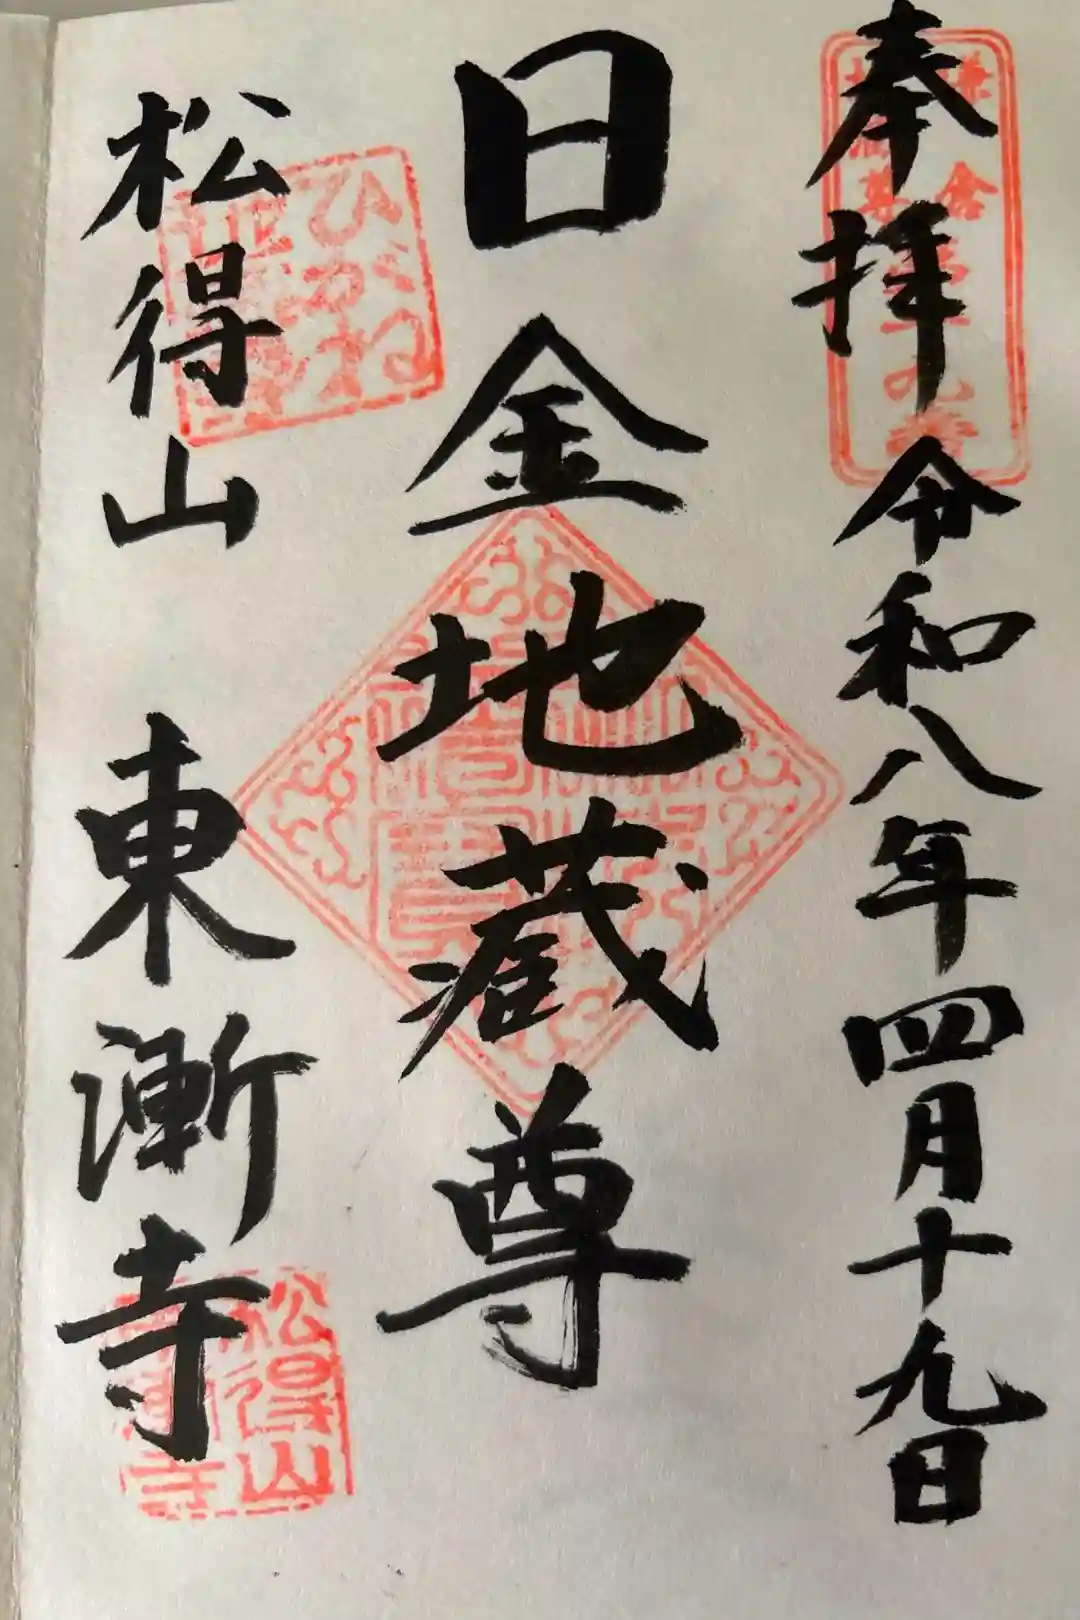 奉拝 令和八年四月十九日
日金地蔵尊
松得山 東漸寺
鎌倉
ひがね
松得山